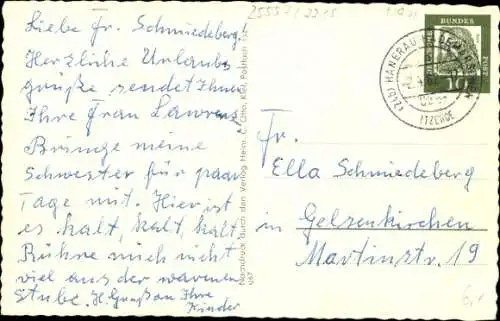 2555-/2215
Liebe Fr. Schmiedeberg.
Herzliche Urlaubs
grüße sendet Ihnen
Ihre Frau Lawrenz
Bringe meine
Schwester für paar
Tage mit. Hier ist
es kalt, kalt, kalt
Rühre mich nicht
viel aus der warmen
Stube. H. Gruß an Ihre
Kinder
Nachdruck durch den Verlag Heinr. C. Otto, Kiel, Postfach
DEUTSCHE BUNDESPOST
10
(24b) HANERAU
ÜBER
ITZEHOE
Fr.
Ella Schmiedeberg
in Gelsenkirchen
Martinstr. 19
6,-